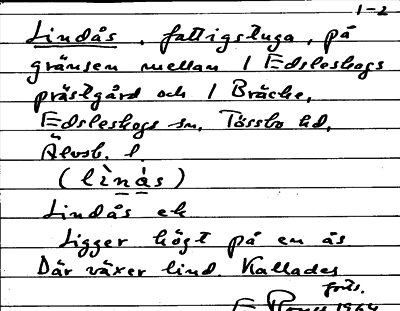 1-2
Lindås, fattigstuga, på
gränsen mellan 1 Edsleskogs
prästgård och 1 Bräcke,
Edsleskogs sn, Tössbo hd,
Älvsb. l.
(lìnás)
Lindås ek
Ligger högt på en ås.
Där växer lind. Kallades
forts.
1964